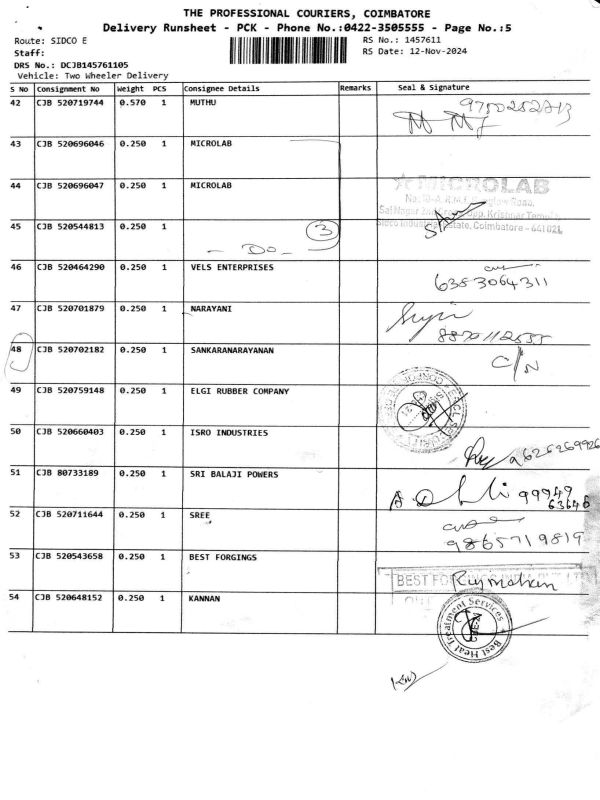 THE PROFESSIONAL COURIERS, COIMBATORE
Delivery Runsheet - PCK - Phone No.:0422-3505555 - Page No.:5
Route: SIDCO E
RS No.: 1457611
Staff:
RS Date: 12-Nov-2024
DRS No.: DCJB145761105
Vehicle: Two Wheeler Delivery
S No Consignment No Weight PCS Consignee Details Remarks Seal & Signature
42 CJB 520719744 0.570 1 MUTHU
43 CJB 520696046 0.250 1 MICROLAB
44 CJB 520696047 0.250 1 MICROLAB
MICROLAB
Sidco Industrial Estate, Coimbatore - 641 021.
45 CJB 520544813 0.250 1 - Do - 3
46 CJB 520464290 0.250 1 VELS ENTERPRISES
6383064311
47 CJB 520701879 0.250 1 NARAYANI
48 CJB 520702182 0.250 1 SANKARANARAYANAN
C/N
49 CJB 520759148 0.250 1 ELGI RUBBER COMPANY
50 CJB 520660403 0.250 1 ISRO INDUSTRIES
51 CJB 80733189 0.250 1 SRI BALAJI POWERS
99949
63646
52 CJB 520711644 0.250 1 SREE
9865719819
53 CJB 520543658 0.250 1 BEST FORGINGS
BEST Rajmohan
54 CJB 520648152 0.250 1 KANNAN
Best Heat Treatment Services